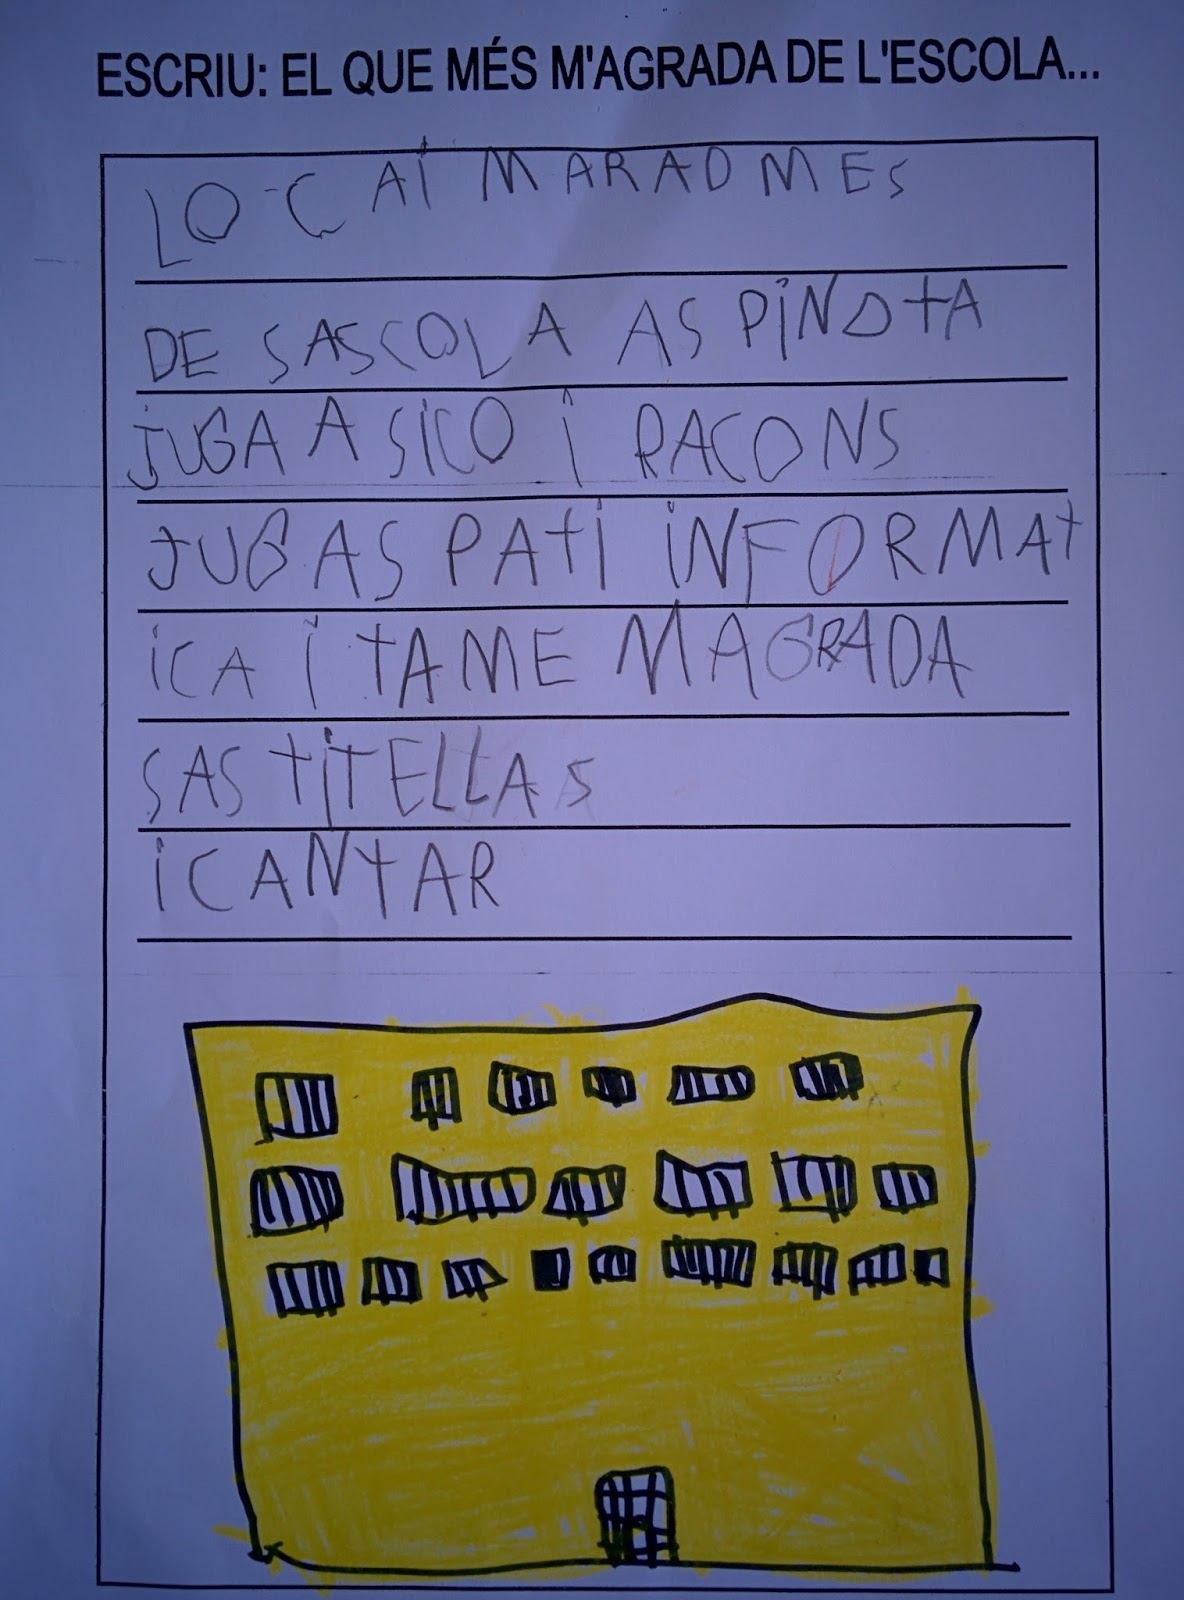 ESCRIU: EL QUE MÉS M'AGRADA DE L'ESCOLA...
LO C AI MARAD MES
DE SASCOLA AS PINOTA
JUGA A SICO I RACONS
JUGAS PATI INFORMAT
ICA I TAME MAGRADA
SAS TITELLAS
I CANTAR